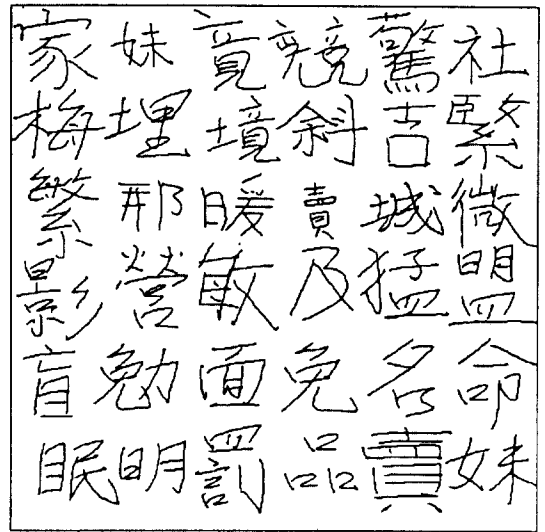 家妹竟競驚社
梅埋境斜吉緊
繁邢暖賣城微
影営敏及猛盟
盲勉面免名命
眠明罰品賣妹